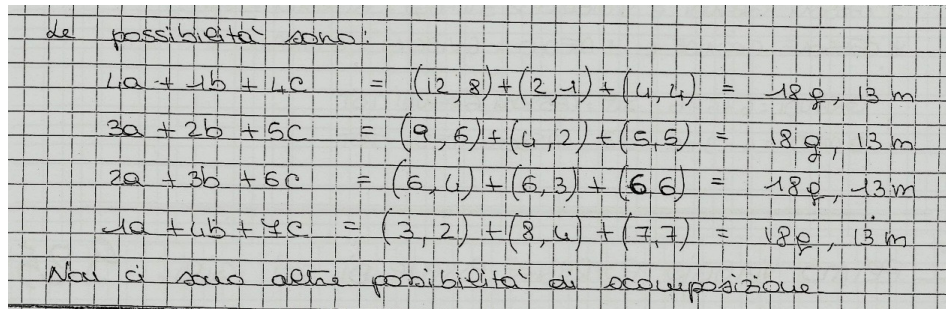 Le possibilità sono:
4a + 1b + 4c = (12,8)+(2,1)+(4,4) = 18g, 13m
3a + 2b + 5c = (9,6)+(4,2)+(5,5) = 18g, 13m
2a + 3b + 6c = (6,4)+(6,3)+(6 6) = 18g, 13m
1a + 4b + 7c = (3,2)+(8,4)+(7,7) = 18g, 13m
Non ci sono altre possibilità di scomposizione